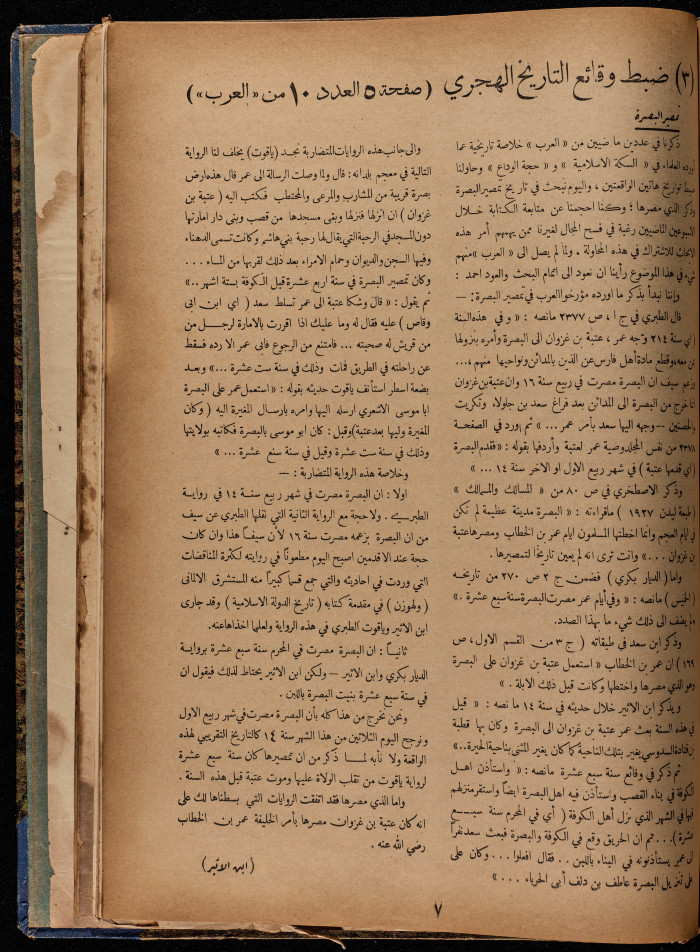 (٣) ضبط وقائع التاريخ الهجري (صفحة ٥ العدد ١٠ من «العرب»)
تمصير البصرة
ذكرنا في عددين ماضيين من « العرب » خلاصة تاريخية عما
اورده العلماء في « السكة الاسلامية » و « حجة الوداع » وحاولنا
ضبط تواريخ هاتين الواقعتين ، واليوم نبحث في تاريخ تمصير البصرة
وذكر الذي مصرها ؛ وكنا احجمنا عن متابعة الكتابة خلال
الاسبوعين الماضيين رغبة في فسح المجال لغيرنا ممن يهمهم أمر هذه
الابحاث للاشتراك في هذه المحاولة . ولما لم يصل الى « العرب » منهم
شيء في هذا الموضوع رأينا ان نعود الى اتمام البحث والعود احمد :
وإننا نبدأ بذكر ما اورده مؤرخو العرب في تمصير البصرة : —
قال الطبري في ج ١ ، ص ٢٣٧٧ مانصه : « و في هذه السنة
(اي سنة ١٤) وجه عمر ، عتبة بن غزوان الى البصرة وأمره بنزولها
بمن معه وقطع مادة أهل فارس عن الذين بالمدائن ونواحيها منهم ...
وزعم سيف ان البصرة مصرت في ربيع سنة ١٦ وان عتبة بن غزوان
انما خرج من البصرة الى المدائن بعد فراغ سعد بن جلولاء وتكريت
والحصنين – وجهه اليها سعد بأمر عمر ... » ثم اورد في الصفحة
٢٣٧٨ من نفس المجلد وصية عمر لعتبة وأردفها بقوله : « فقدم البصرة
(اي قدمها عتبة) في شهر ربيع الاول او الاخر سنة ١٤ ... »
وذكر الاصطخري في ص ٨٠ من « المسالك والممالك »
(طبعة ليدن ١٩٢٧ ) ماقراءته : « البصرة مدينة عظيمة لم تكن
في ايام العجم وانما اختطها المسلمون ايام عمر بن الخطاب ومصرها عتبة
بن غزوان ... » وانت ترى انه لم يعين تاريخًا لتمصيرها .
واما (الديار بكري ) فضمن ج ٢ ص ٢٧٠ من تاريخه
(الخميس ) مانصه : « وفي أيام عمر مصرت البصرة سنة سبع عشرة . »
ولم يضف الى ذلك شيء ما بهذا الصدد.
وذكر ابن سعد في طبقاته ( ج ٣ من القسم الاول ، ص
١٦٩ ) ان عمر بن الخطاب « استعمل عتبة بن غزوان على البصرة
وهو الذي مصرها واختطها وكانت قبل ذلك الابلة . »
ويذكر ابن الاثير خلال حديثه في سنة ١٤ ما نصه : « قيل
في هذه السنة بعث عمر عتبة بن غزوان الى البصرة وكان بها قطبة
بن قتادة السدوسي يغير بتلك الناحية كما كان يغير المثنى بناحية الحيرة. »
ثم ذكر في وقائع سنة سبع عشرة مانصه : « واستأذن اهل
الكوفة في بناء القصب واستأذن فيه اهل البصرة ايضًا واستقر منزلهم
فيها في الشهر الذي نزل أهل الكوفة ( أي في المحرم سنة سبع
عشرة ) ... ثم ان الحريق وقع في الكوفة والبصرة فبعث سعد نفرًا
الى عمر يستأذنونه في البناء باللبن .. فقال افعلوا ... وكان على
تنزيل البصرة عاطف بن دلف أبي الحرباء ... »
والى جانب هذه الروايات المتضاربة نجد (ياقوت) يخلف لنا الرواية
التالية في معجم بلدانه : قال ولما وصلت الرسالة الى عمر قال هذه ارض
بصرة قريبة من المشارب والمرعى والمحتطب فكتب اليه ( عتبة بن
غزوان ) ان انزلها فنزلها وبقى مسجدها من قصب وبنى دار امارتها
دون المسجد في الرحبة التي يقال لها رحبة بني هاشم وكانت تسمى الدهناء
وفيها السجن والديوان وحمام الامراء بعد ذلك لقربها من الماء ...
وكان تمصير البصرة في سنة اربع عشرة قبل الكوفة بستة اشهر .. »
ثم يقول : « قال وشكا عتبة الى عمر تسلط سعد ( اي ابن ابى
وقاص ) عليه فقال له وما عليك اذا اقررت بالامارة لرجل من
من قريش له صحبته ... فامتنع من الرجوع فابى عمر الا رده فسقط
عن راحلته في الطريق فمات وذلك في سنة ست عشرة ... » وبعد
بضعة اسطر استأنف ياقوت حديثه بقوله : « استعمل عمر على البصرة
ابا موسى الاشعري ارسله اليها وامره بارسال المغيرة اليه ( وكان
المغيرة وليها بعد عتبة) وقيل : كان ابو موسى بالبصرة فكاتبه بولايتها
وذلك في سنة ست عشرة وقيل في سنة سبع عشرة ... »
وخلاصة هذه الرواية المتضاربة : —
اولا : ان البصرة مصرت في شهر ربيع سنة ١٤ في رواية
الطبري . ولا حجة مع الرواية الثانية التي نقلها الطبري عن سيف
من ان البصرة بزعمه مصرت سنة ١٦ لأن سيفًا هذا وان كان
حجة عند الاقدمين اصبح اليوم مطعونًا في روايته لكثرة المناقضات
التي وردت في احاديثه والتي جمع قسما كبيرًا منه المستشرق الالمانى
( ولهوزن ) في مقدمة كتابه ( تاريخ الدولة الاسلامية ) وقد جارى
ابن الاثير وياقوت الطبري في هذه الرواية ولعلهما اخذاها عنه .
ثانيًا : ان البصرة مصرت في المحرم سنة سبع عشرة برواية
الديار بكري وابن الاثير — ولكن ابن الاثير يحتاط لذلك فيقول ان
في سنة سبع عشرة بنيت البصرة باللبن .
ونحن نخرج من هذا كله بأن البصرة مصرت في شهر ربيع الاول
ونرجح اليوم الثلاثين من هذا الشهر سنة ١٤ كالتاريخ التقريبي لهذه
الواقعة ولا نأبه لما ذكر من ان تمصيرها كان سنة سبع عشرة
لرواية ياقوت من تقلب الولاة عليها وموت عتبة قبل هذه السنة .
واما الذي مصرها فقد اتفقت الروايات التي بسطناها لك على
انه كان عتبة بن غزوان مصرها بأمر الخليفة عمر بن الخطاب
رضي الله عنه .
(ابن الاثير)
٧